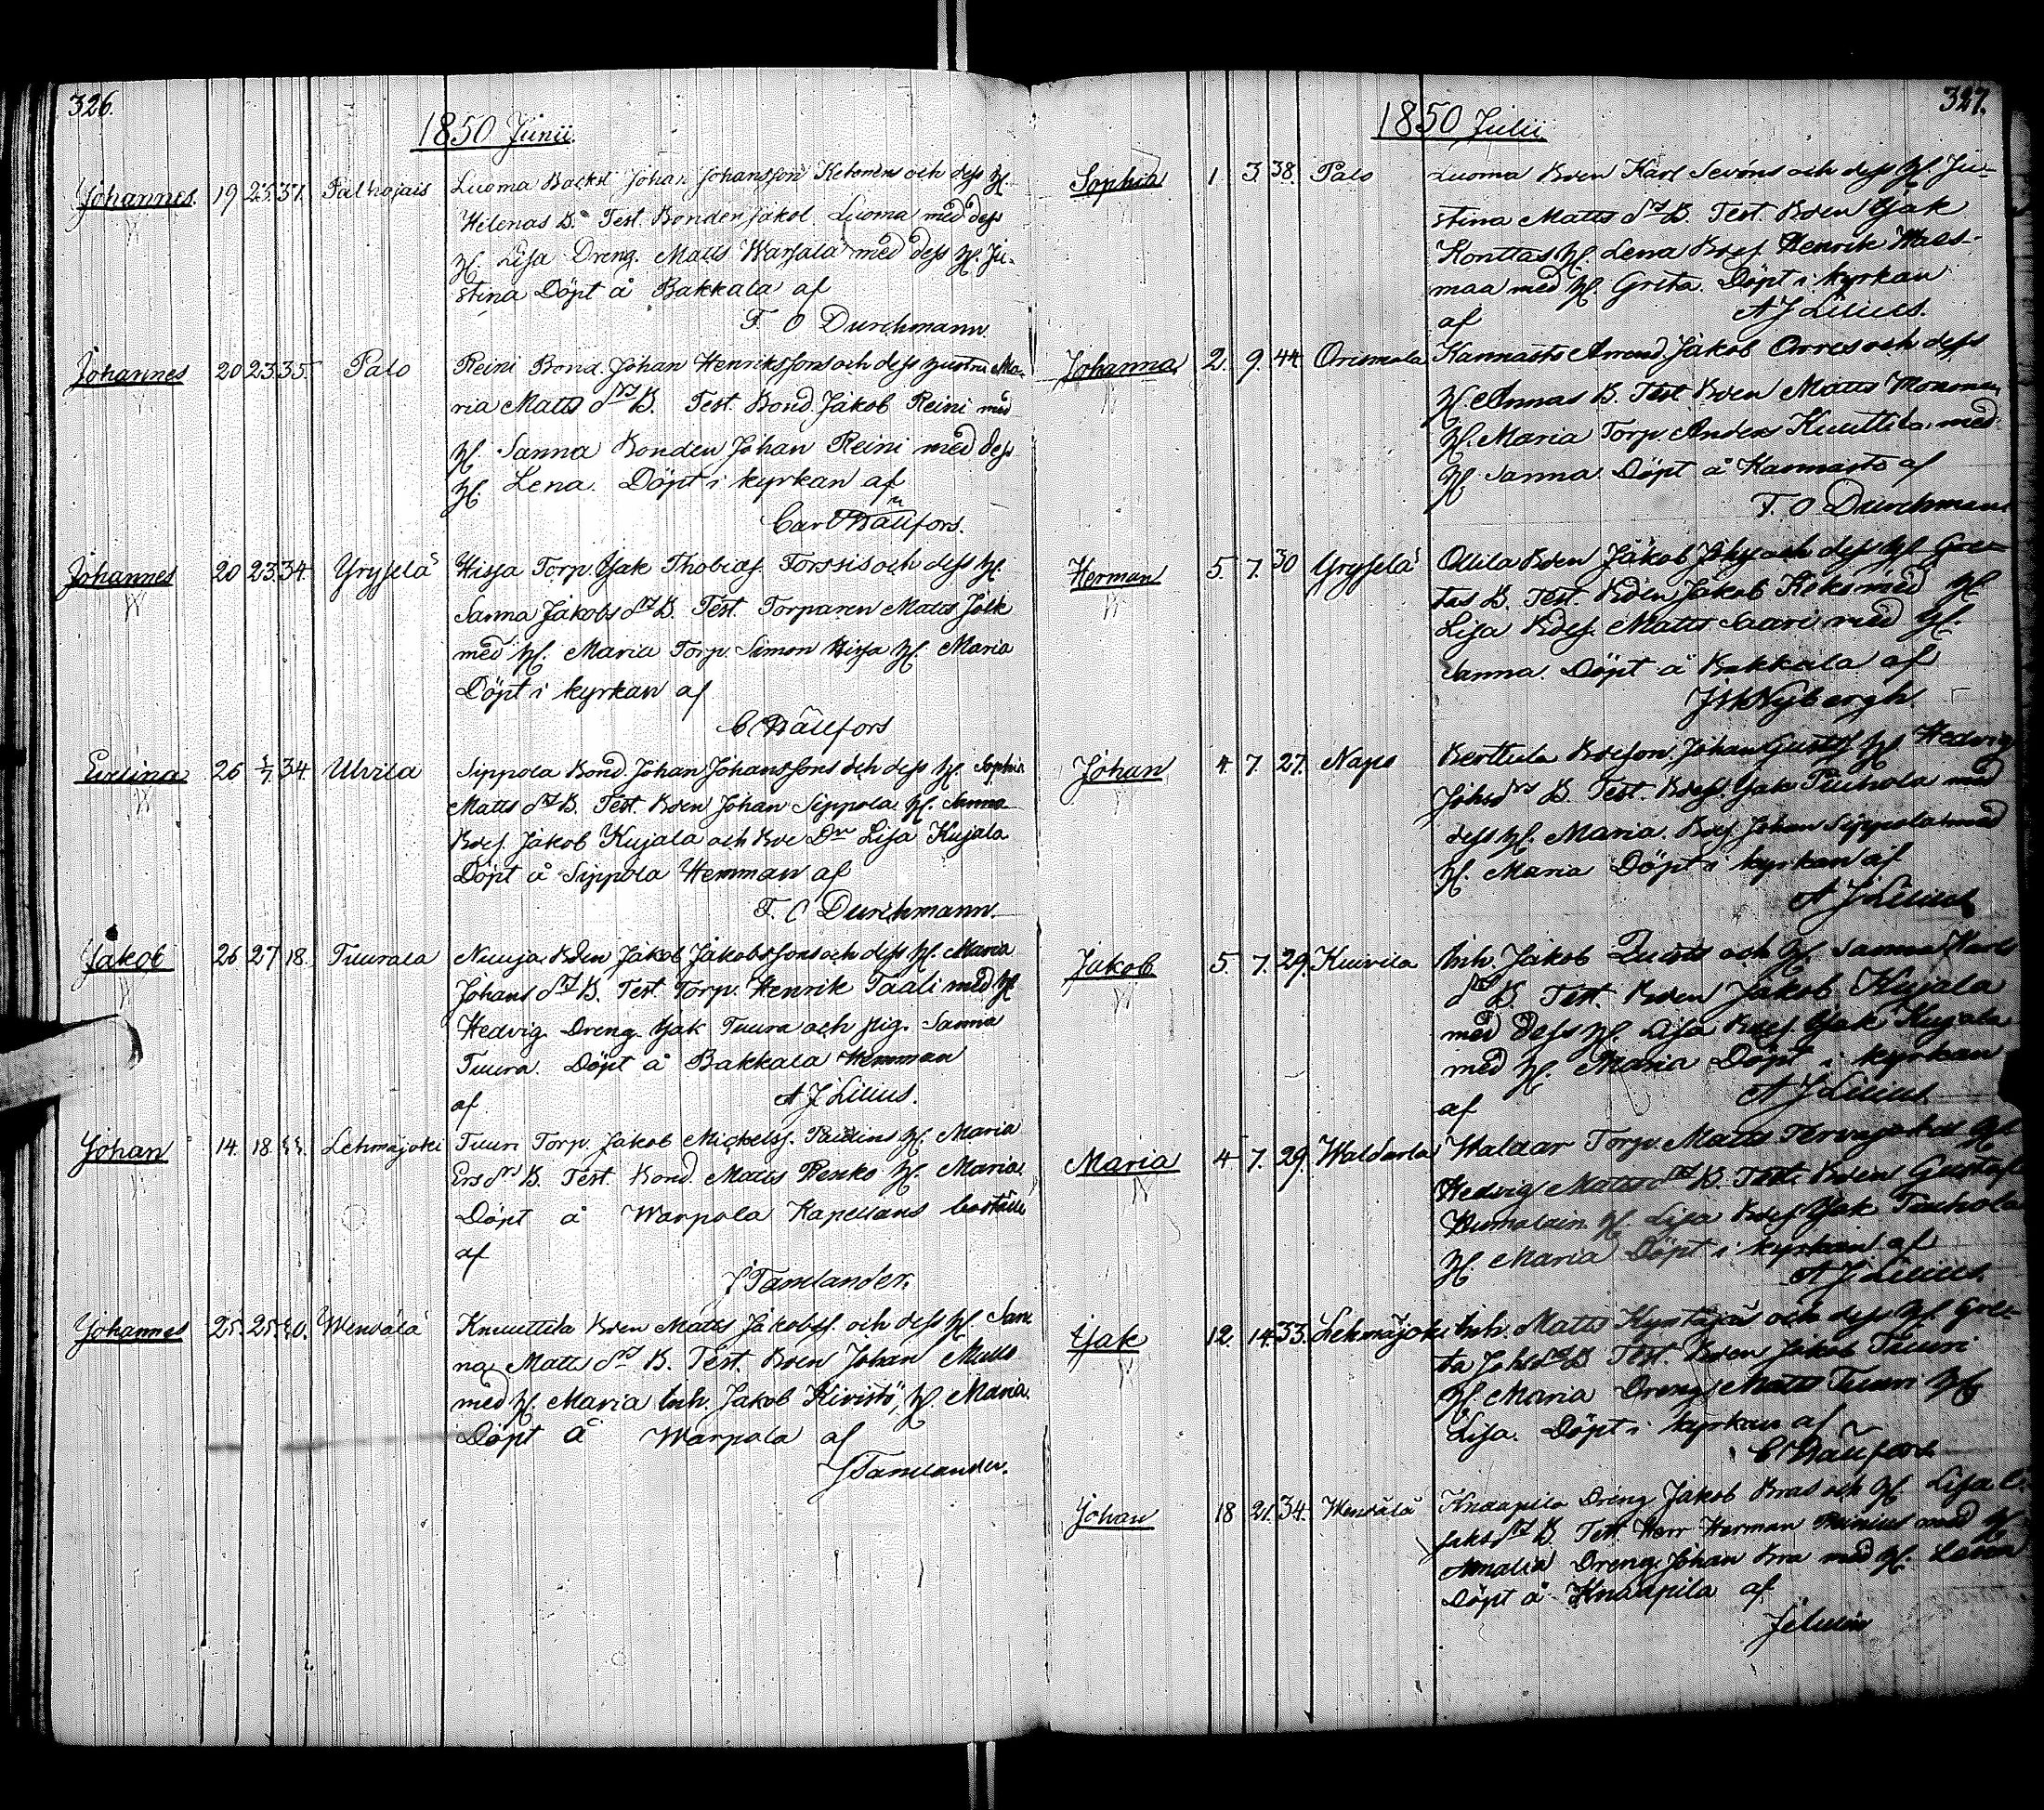 326.
1850 Junii.
Johannes. 19 23. 37. Palhojais Luoma Backst. Johan Johansson Ketonens och dess H.
Helenas B. Test. Bonden Jakob Luoma med dess
H. Lisa Dreng. Matts Warsala med dess H. Ju-
stina Döpt å Bakkala af
F. O Durchmann.
Johannes 20 23. 35. Palo Reini Bond. Johan Henrikssons och dess hustru Ma-
ria Matts drs B. Test. Bond. Jakob Reini med
H. Sanna Bonden Johan Reini med dess
H. Lena. Döpt i kyrkan af
Carl Wällfors.
Johannes 20 23. 34. Yrysselä Hissa Torp. Isak Thobias. Forssis och dess H.
Sanna Jakobs drs B. Test. Torparen Matts Jolk
med H. Maria Torp. Simon Hissa H. Maria
Döpt i kyrkan af
C Wällfors
Evelina 26 1/7 34. Ulvila Sippola Bond. Johan Johanssons och dess H. Sophia
Matts drs B. Test. Bden Johan Sippola H. Anna
Bdes. Jakob Kujala och Bde Dr Lisa Kujala
Döpt å Sippola Hemman af
F. O Durchmann.
Jakob 26. 27 18. Tuurala Nuuja Bden Jakob Jakobssons och dess H. Maria
Johans drs B. Test. Torp. Henrik Taali med H.
Hedvig Dreng. Isak Tuura och pig. Sanna
Tuura. Döpt å Bakkala Hemman
af A J Lilius.
Johan 14. 18. Lehmäjoki Tuuri Torp. Jakob Mickelss. Paulins H. Maria
Ers dr B. Test. Bond. Matts Renko H. Maria
Döpt å Warpola Kapellans boställe
af
J Tamlander.
Johannes 25. 25. 40. Wendälä Knuuttila Bden Matts Jakobss. och dess H. San
na Matts drs B. Test. Bden Johan Mullo
med H. Maria Inh. Jakob Kivistö, H. Maria.
Döpt å Warpola af
J Tamlander.
327.
1850 Julii
Sophia 1. 3. 38. Palo Luoma Bden Karl Sevóns och dess H. Ju-
stina Matts drs B. Test. Bden Isak
Konttas H. Lena Bdes. Henrik Wals-
maa med H. Greta. Döpt i kyrkan
af A J Lilius.
Johanna 2. 9. 44. Orismala Kannasto Arrend. Jakob Orres och dess
H. Annas B. Test Bden Matts Mononen
H. Maria Torp. Anders Knuttila med
H. Sanna. Döpt å Kannasto af
F. O Durchmann
Herman 5. 7. 30 Yrysselä Ollila Bden Jakob Johs. och dess H. Gre-
tas B. Test. Bden Jakob Keko med H.
Lisa Bdes. Matts Saari med H.
Sanna. Döpt å Bakkala af
J H Nybergh.
Johan 4. 7. 27. Napo Berttula Bdeson Johan Gustfs. H. Hedvig
Johsdrs B. Test. Bdess. Isak Puuhola med
dess H. Maria. Bdes. Johan Sippola med
H. Maria Döpt i kyrkan af
A J Lilius
Jakob 5. 7. 29. Kuivila Inh. Jakob och H. Sanna Karls
drs B. Test. Bden Jakob Kujala
med dess H. Lisa Bdes. Isak Kujala
med H. Maria Döpt i kyrkan
af A J Lilius
Maria 4 7. 29. Waldarla Waldar Torp. Matts Tervajokis H.
Hedvig Matts drs B. Test. Bden Gustaf
Humalain H. Lisa Bdes. Isak Tuuhola
H. Maria Döpt i kyrkan af
A J. Lilius.
Isak 12. 14. 33. Lehmäjoki Inh. Matts Kyntäjäs och dess H. Gre-
ta Johsdrs B Test. Bden Jakob Tuuri
H. Maria Dreng. Matts Tuuri H.
Lisa. Döpt i kyrkan af
C Wällfors.
Johan 18 21. 34. Wendälä Knaapila Dreng Jakob Bras och H. Lisa C.
Jaks drs B Test. Herr Herman Reinius med H.
Amalia Dreng Johan Bra med H. Lovisa
Döpt å Knaapila af